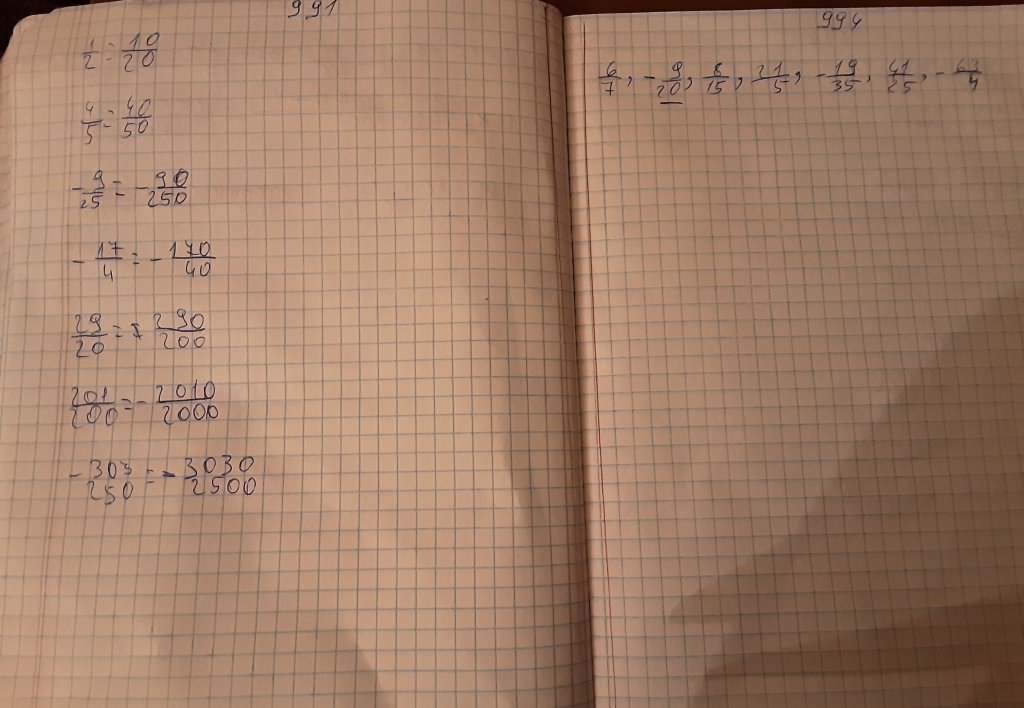 991
1/2 = 10/20
4/5 = 40/50
-9/25 = -90/250
-17/4 = -170/40
29/20 = 290/200
201/200 = -2010/2000
-303/250 = -3030/2500
994
6/7, -9/20, 8/15, 21/5, -19/35, 41/25, -63/4